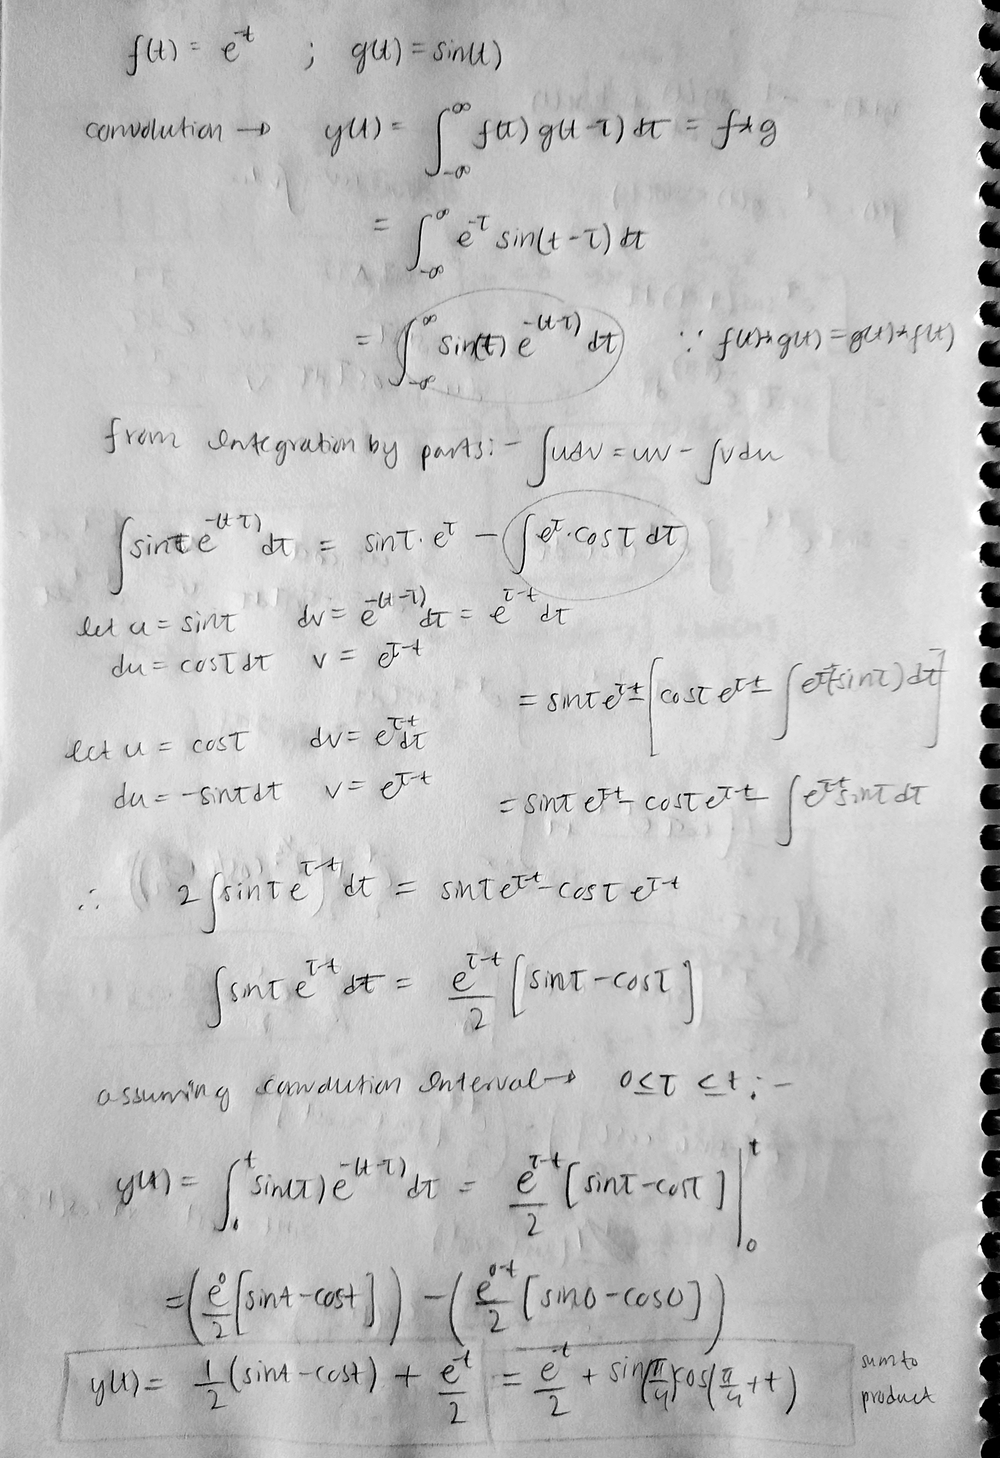 f(t) = e^-t ; g(t) = sin(t)
convolution → y(t) = ∫_-∞^∞ f(τ) g(t-τ) dτ = f*g
= ∫_-∞^∞ e^-τ sin(t-τ) dτ
= ∫_-∞^∞ sin(τ) e^-(t-τ) dτ ∵ f(t)*g(t) = g(t)*f(t)
from integration by parts:- ∫udv = uv - ∫vdu
∫sinτ e^-(t-τ) dτ = sinτ · e^τ - ∫e^τ · cosτ dτ
let u = sinτ dv = e^-(t-τ) dτ = e^τ-t dτ
du = cosτ dτ v = e^τ-t
= sinτ e^τ-t - [cosτ e^τ-t - ∫e^τ-t(-sinτ) dτ]
let u = cosτ dv = e^τ-t dτ
du = -sinτ dτ v = e^τ-t
= sinτ e^τ-t - cosτ e^τ-t - ∫e^τ-t sinτ dτ
∴ 2∫sinτ e^τ-t dτ = sinτ e^τ-t - cosτ e^τ-t
∫sinτ e^τ-t dτ = e^τ-t/2 [sinτ - cosτ]
assuming convolution interval → 0≤τ≤t :-
y(t) = ∫_0^t sin(τ) e^-(t-τ) dτ = e^τ-t/2 [sinτ - cosτ] |_0^t
= (e^0/2 [sint - cost]) - (e^0-t/2 [sin0 - cos0])
y(t) = 1/2 (sint - cost) + e^-t/2 = e^-t/2 + sin(π/4)cos(π/4 + t)
sum to
product